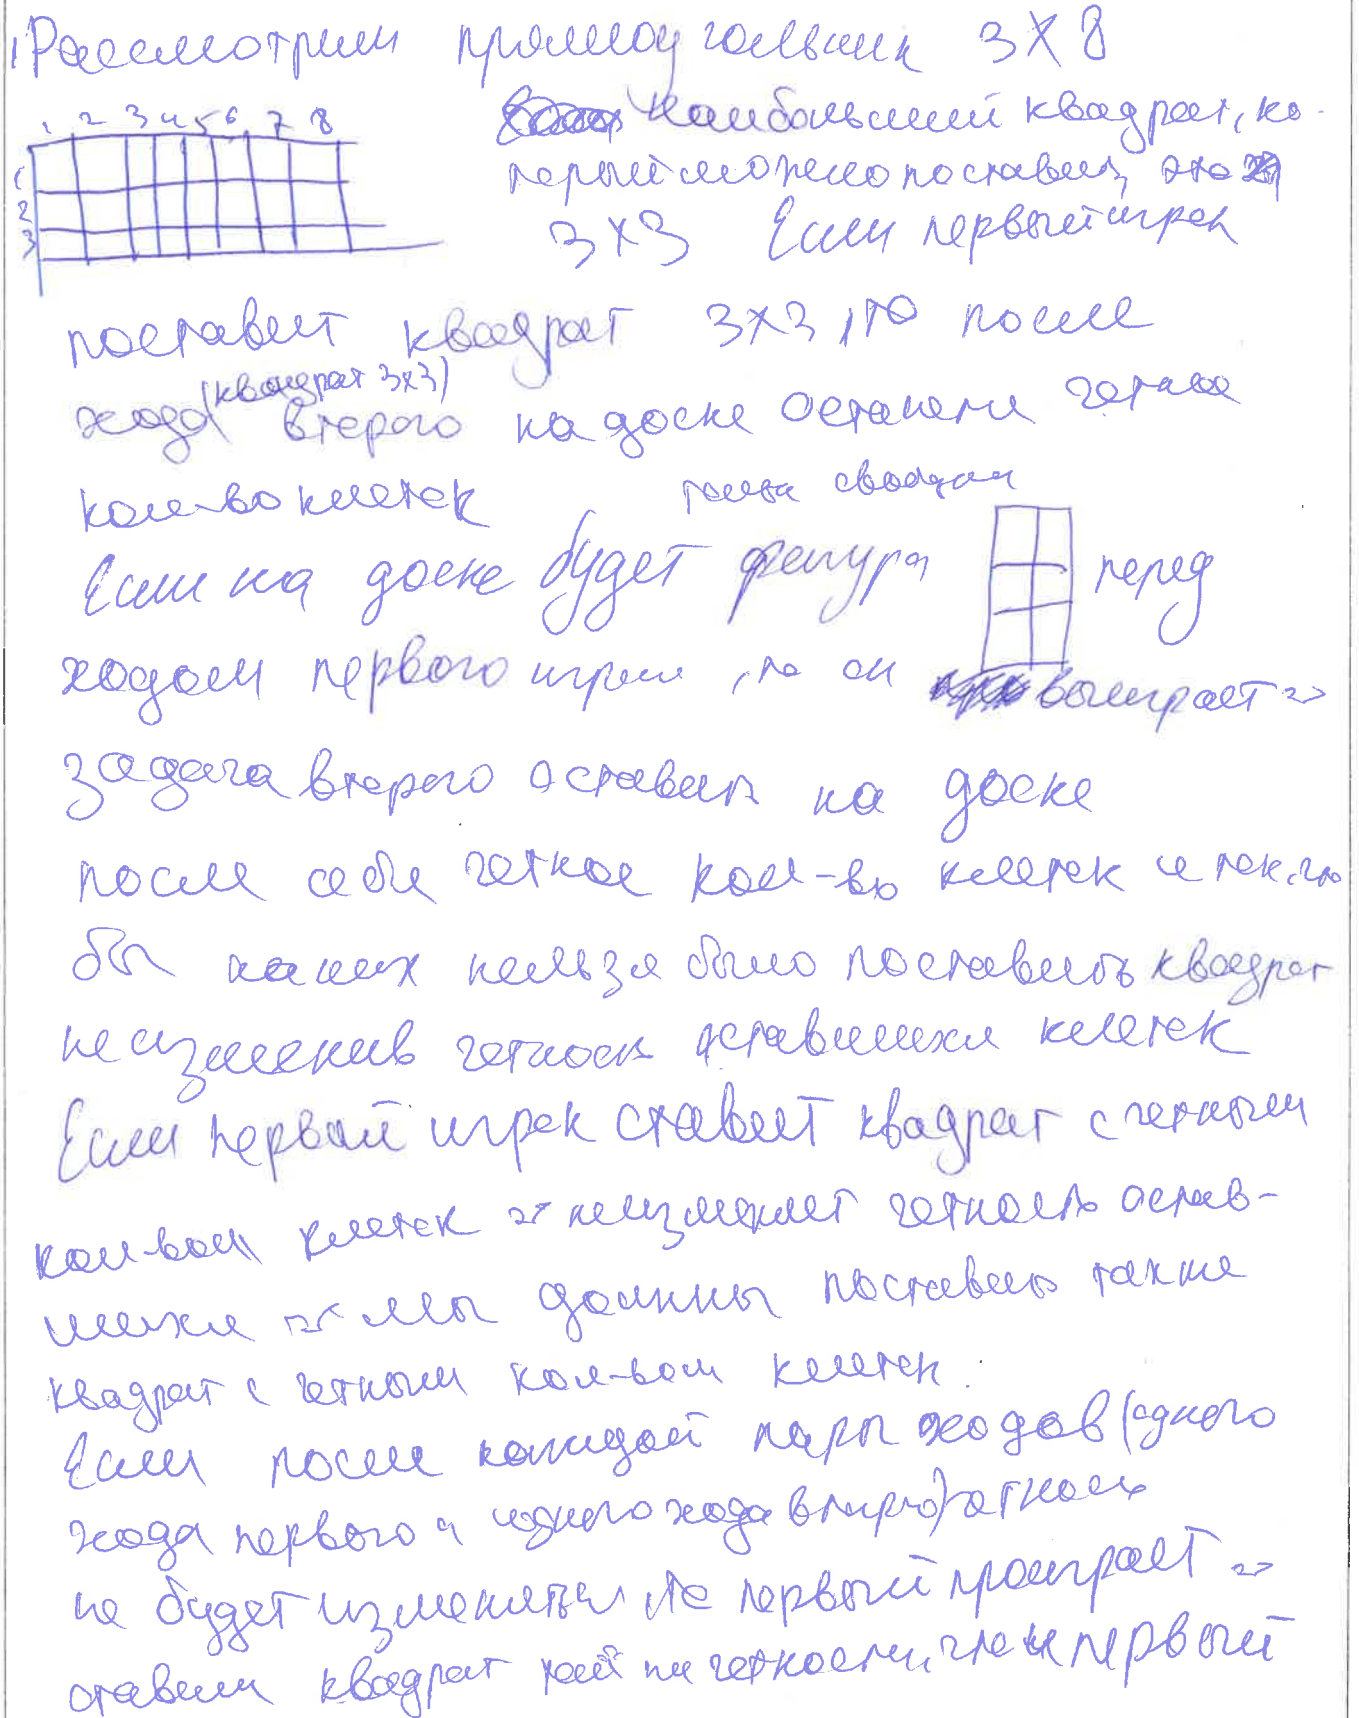 Рассмотрим прямоугольник 3X8
1 2 3 4 5 6 7 8
1
2
3
Наибольший квадрат, ко-
торый можно поставить, это
3X3 Если первый игрок
поставит квадрат 3X3, то после
(квадрат 3x3)
хода второго на доске останется четное
кол-во клеток
Если на доске будет фигура перед
ходом первого игрока, то он выиграет =>
задача второго оставить на доске
после себя четное кол-во клеток и так, что
бы на них нельзя было поставить квадрат
не изменив четность оставшихся клеток
Если первый игрок ставит квадрат с четным
кол-вом клеток => не изменяет четность остав-
шихся => мы должны поставить также
квадрат с четным кол-вом клеток.
Если после каждой пары ходов (одного
хода первого и одного хода второго) четность
не будет изменяться, то первый проиграет =>
ставим квадрат той же четности, что и первый